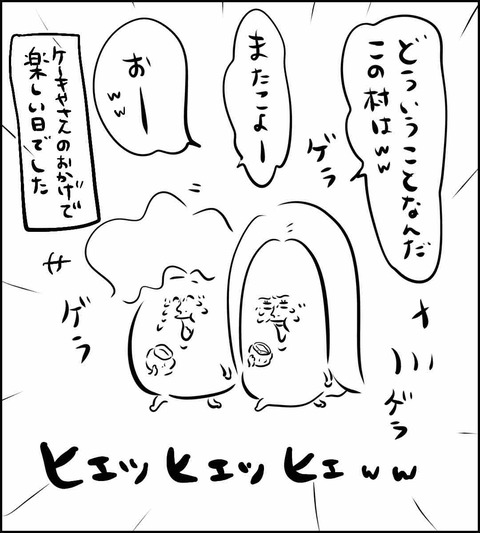 どういうことなんだ
この村はww
またこよー
おー
ww
ケーキやさんのおかげで
楽しい日でした
ゲラ
ゲラ
ゲラ
ヒェッヒェッヒェww